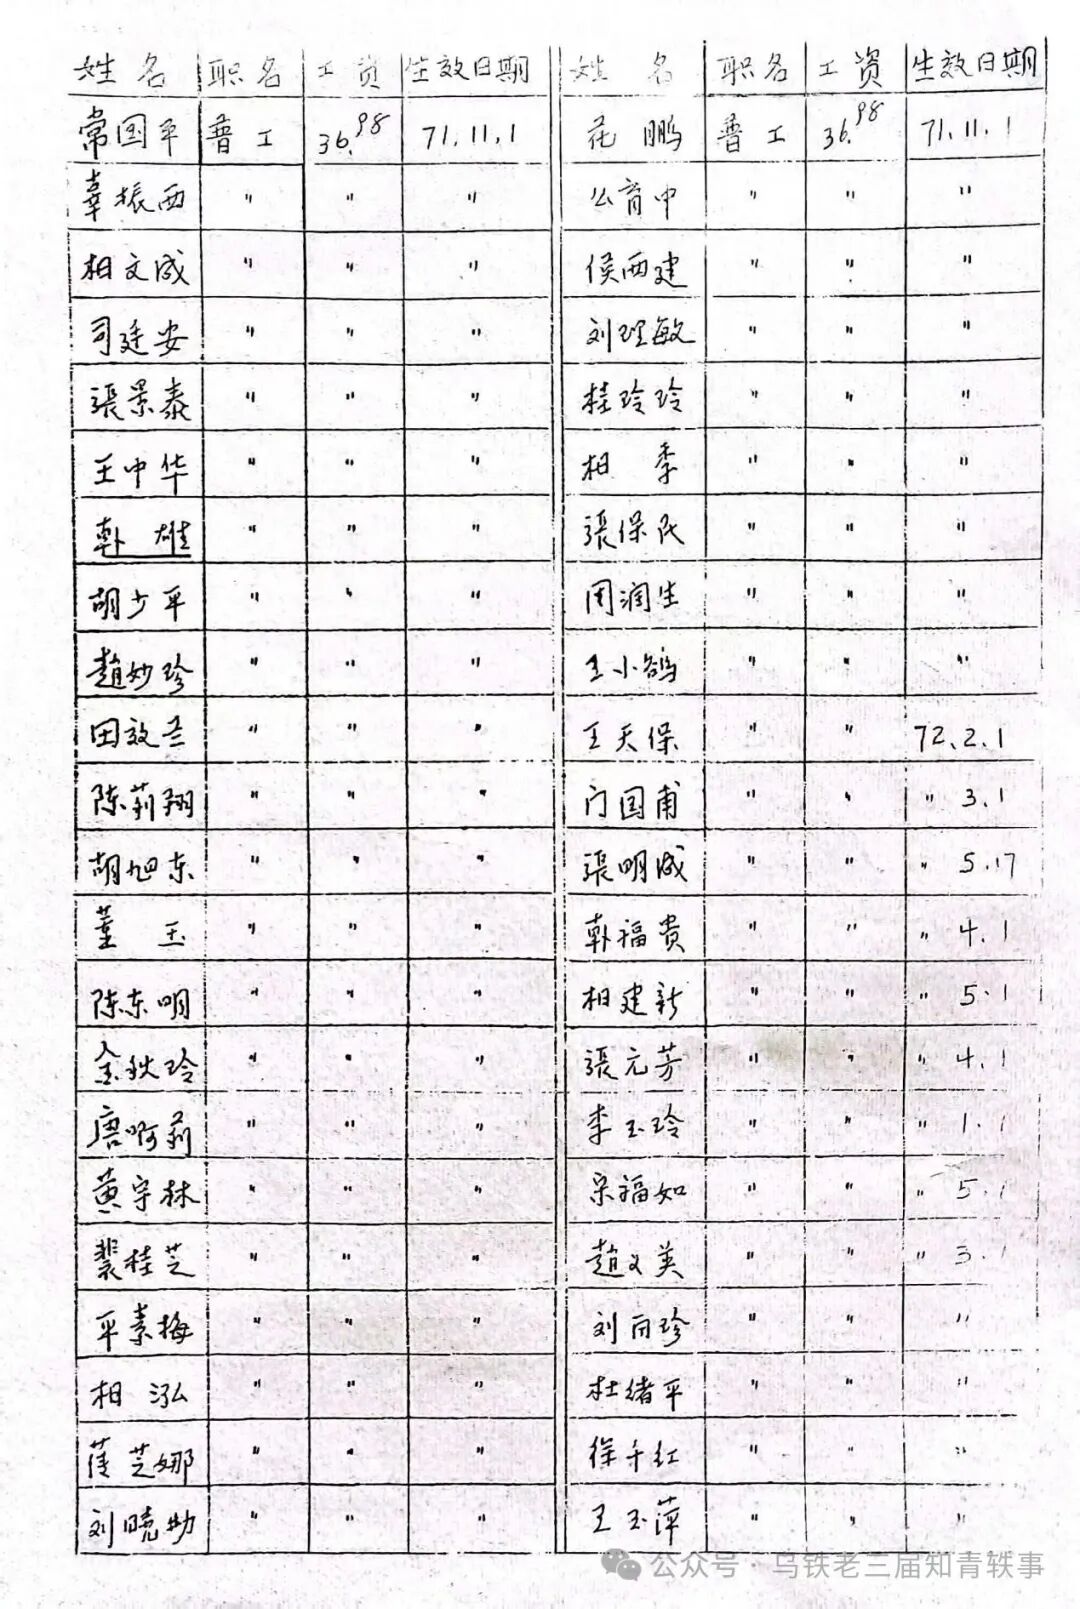 姓名 职名 工资 生效日期 姓名 职名 工资 生效日期
常国平 普工 36.98 71.11.1 花鹏 普工 36.98 71.11.1
辜振西 " " " 公育中 " " "
相文成 " " " 侯西建 " " "
司廷安 " " " 刘理敏 " " "
張景泰 " " " 桂玲玲 " " "
王中华 " " " 相季 " " "
韩雄 " " " 張保民 " " "
胡少平 " " " 周润生 " " "
趙妙珍 " " " 王小鸽 " " "
田效兰 " " " 王天保 " " 72.2.1
陈莉翔 " " " 门国甫 " " " 3.1
胡旭东 " " " 張明成 " " " 5.17
董玉 " " " 韩福贵 " " " 4.1
陈东明 " " " 相建新 " " " 5.1
金秋玲 " " " 張元芳 " " " 4.1
唐啊莉 " " " 李玉玲 " " " 1.1
黄守林 " " " 宗福如 " " " 5.1
裴桂芝 " " " 趙文英 " " " 3.1
平素梅 " " " 刘丽珍 " " "
相泓 " " " 杜绪平 " " "
芝娜 " " " 徐千红 " " "
刘曉 " " " 王玉萍 " " "
公众号·乌铁老三届知青轶事